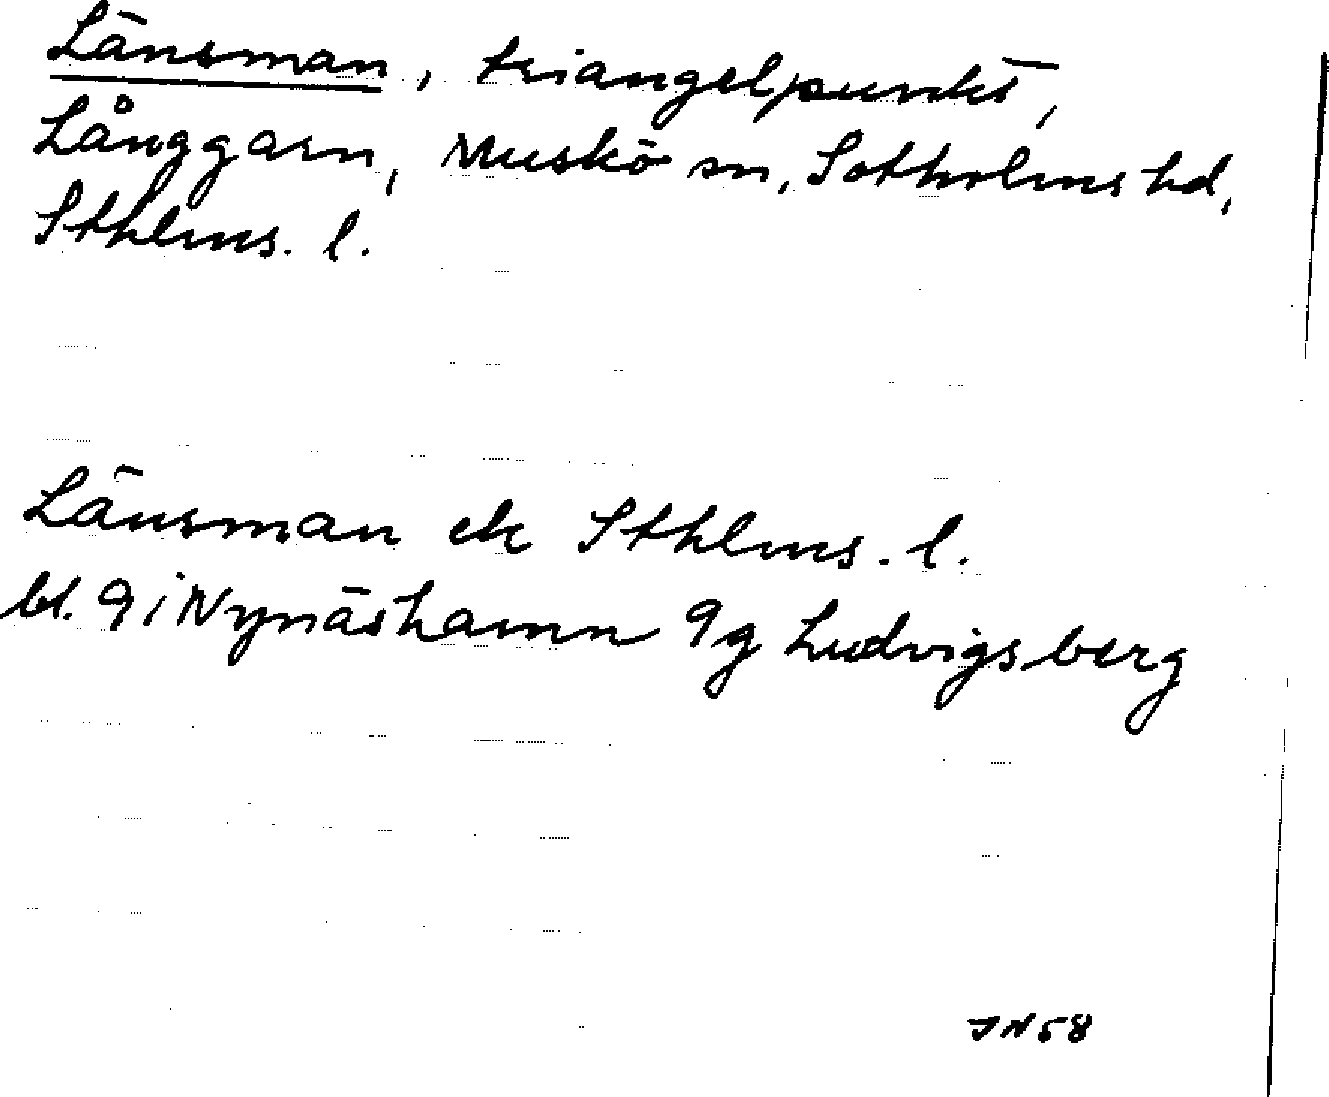 Länsman, triangelpunkt,
Långgarn, Muskö sn, Sotholms hd,
Sthlms. l.
Länsman ek Sthlms. l.
bl. 9 i Nynäshamn 9g Ludvigsberg
JN58